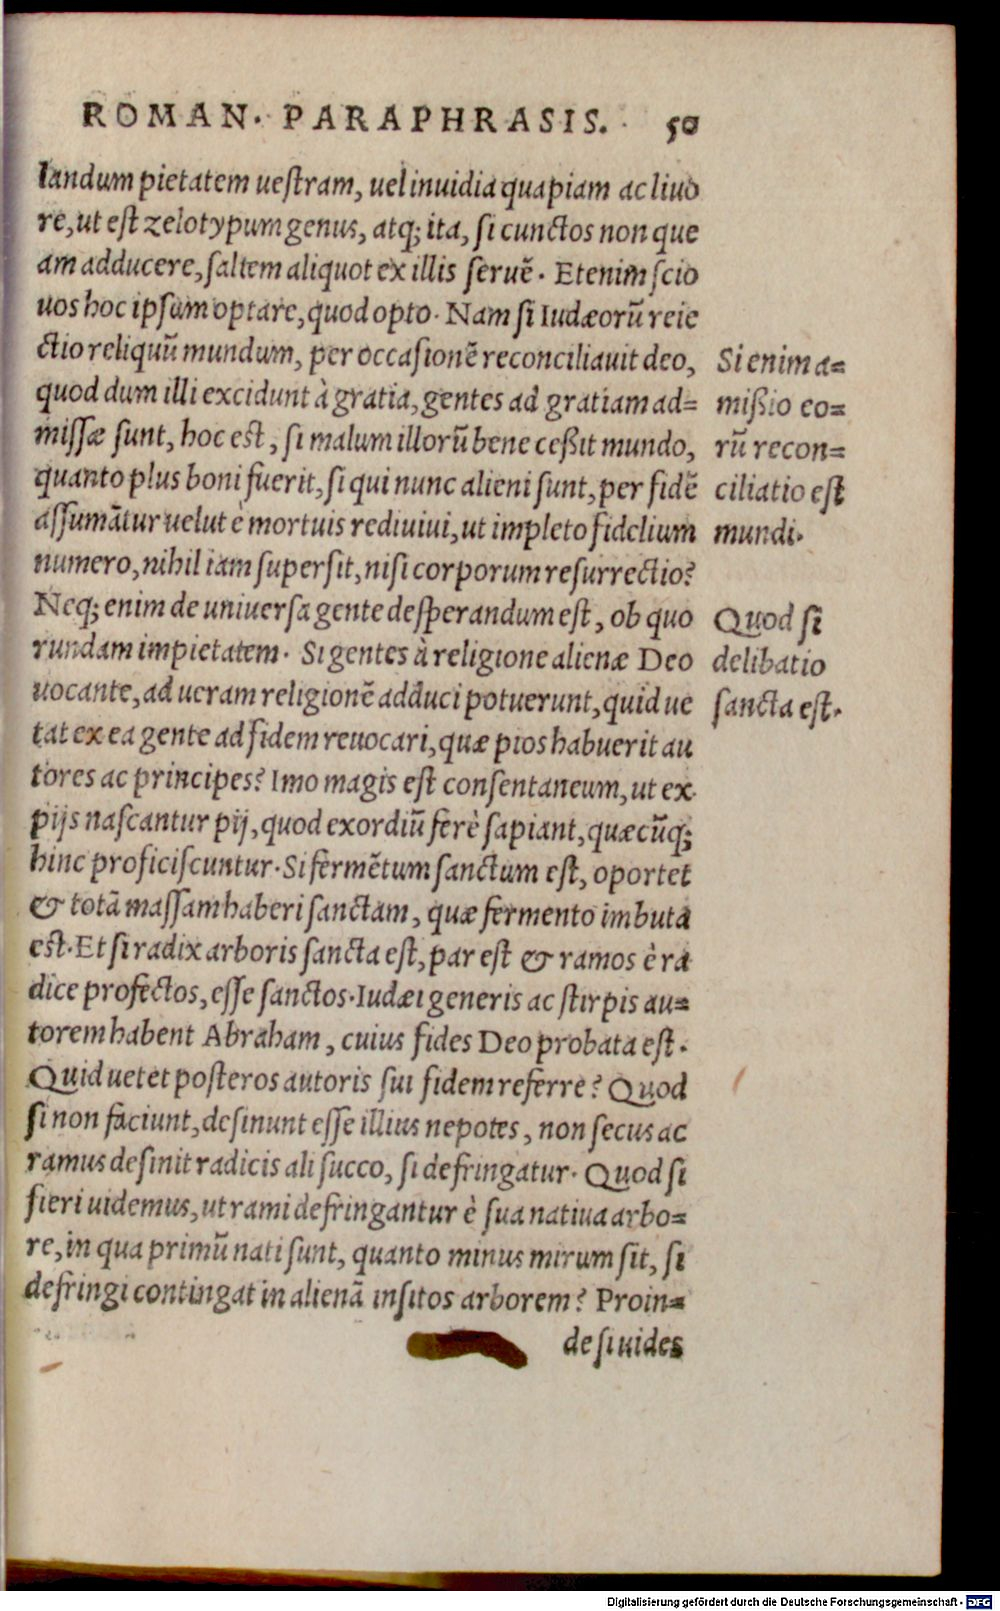 ROMAN. PARAPHRASIS. 50
landum pietatem uestram, uel inuidia quapiam ac liuo
re, ut est zelotypum genus, atq; ita, si cunctos non que
am adducere, saltem aliquot ex illis seruē. Etenim scio
uos hoc ipsum optare, quod opto. Nam si Iudæorū reie
ctio reliquū mundum, per occasionē reconciliauit deo,
quod dum illi excidunt à gratia, gentes ad gratiam ad=
missæ sunt, hoc est, si malum illorū bene ceßit mundo,
quanto plus boni fuerit, si qui nunc alieni sunt, per fidē
assumātur uelut è mortuis rediuiui, ut impleto fidelium
numero, nihil iam supersit, nisi corporum resurrectio?
Neq; enim de uniuersa gente desperandum est, ob quo
rundam impietatem. Si gentes à religione alienæ Deo
uocante, ad ueram religionē adduci potuerunt, quid ue
tat ex ea gente ad fidem reuocari, quæ pios habuerit au
tores ac principes? Imo magis est consentaneum, ut ex
pijs nascantur pij, quod exordiū ferè sapiant, quæcūq;
hinc proficiscuntur. Si fermētum sanctum est, oportet
& totā massam haberi sanctam, quæ fermento imbuta
est. Et si radix arboris sancta est, par est & ramos è ra
dice profectos, esse sanctos. Iudæi generis ac stirpis au=
torem habent Abraham, cuius fides Deo probata est.
Quid uetet posteros autoris sui fidem referre? Quod
si non faciunt, desinunt esse illius nepotes, non secus ac
ramus desinit radicis ali succo, si defringatur. Quod si
fieri uidemus, ut rami defringantur è sua natiua arbo=
re, in qua primū nati sunt, quanto minus mirum sit, si
defringi contingat in alienā insitos arborem? Proin=
de si uides
Si enim a=
mißio eo=
rū recon=
ciliatio est
mundi.
Quod si
delibatio
sancta est.
Digitalisierung gefördert durch die Deutsche Forschungsgemeinschaft - DFG